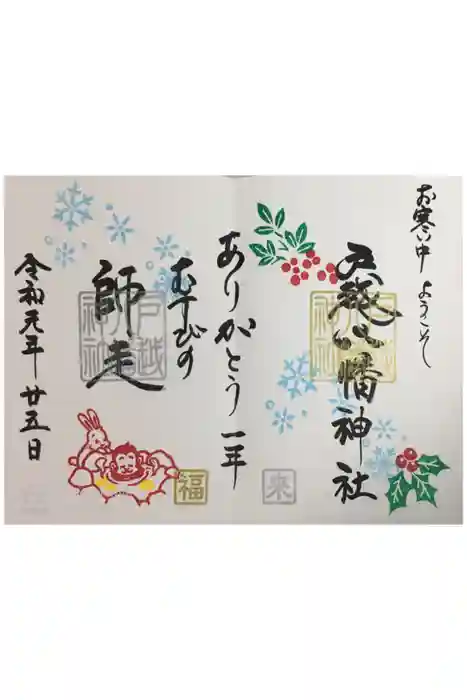 お寒い中 ようこそ
戸越八幡神社
ありがとう 一年
むすびの
師走
令和元年 廿五日
戸越
神社
福
来